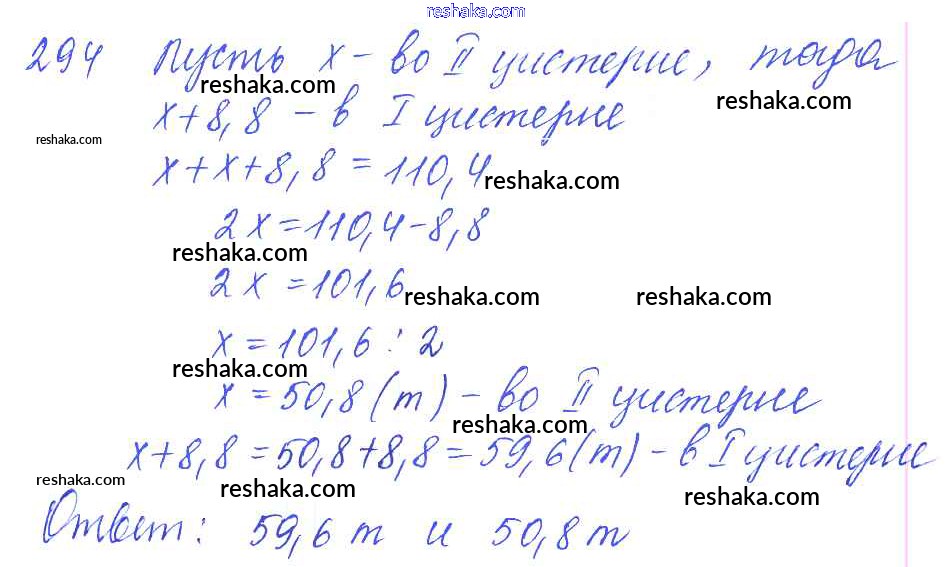 reshaka.com
294 Пусть x - во II цистерне, тогда
reshaka.com
reshaka.com
x+8,8 - в I цистерне
reshaka.com
x+x+8,8=110,4
reshaka.com
2x=110,4-8,8
reshaka.com
2x=101,6
reshaka.com reshaka.com
x=101,6:2
reshaka.com
x=50,8(т) - во II цистерне
reshaka.com
x+8,8=50,8+8,8=59,6(т) - в I цистерне
reshaka.com
reshaka.com
reshaka.com
Ответ: 59,6 т и 50,8 т